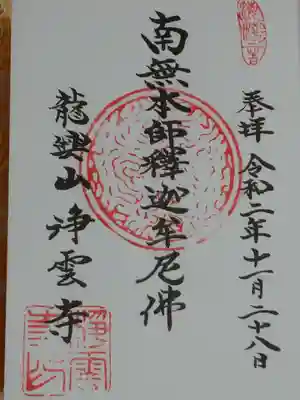 奉拝 令和二年十一月二十八日
南無本師釋迦牟尼佛
龍興山 浄雲寺